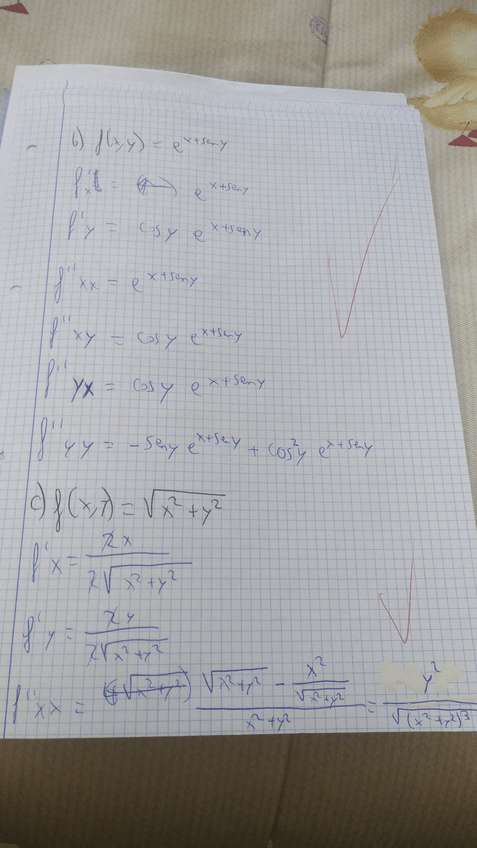 b) f(x,y) = e^{x+sen y}
f'x = e^{x+sen y}
f'y = cos y e^{x+sen y}
f''xx = e^{x+sen y}
f''xy = cos y e^{x+sen y}
f''yx = cos y e^{x+sen y}
f''yy = -sen y e^{x+sen y} + cos²y e^{x+sen y}
c) f(x,y) = √(x²+y²)
f'x = 2x / 2√(x²+y²)
f'y = 2y / 2√(x²+y²)
f''xx = (√(x²+y²) - x²/√(x²+y²)) / (x²+y²) = y² / √((x²+y²)³)